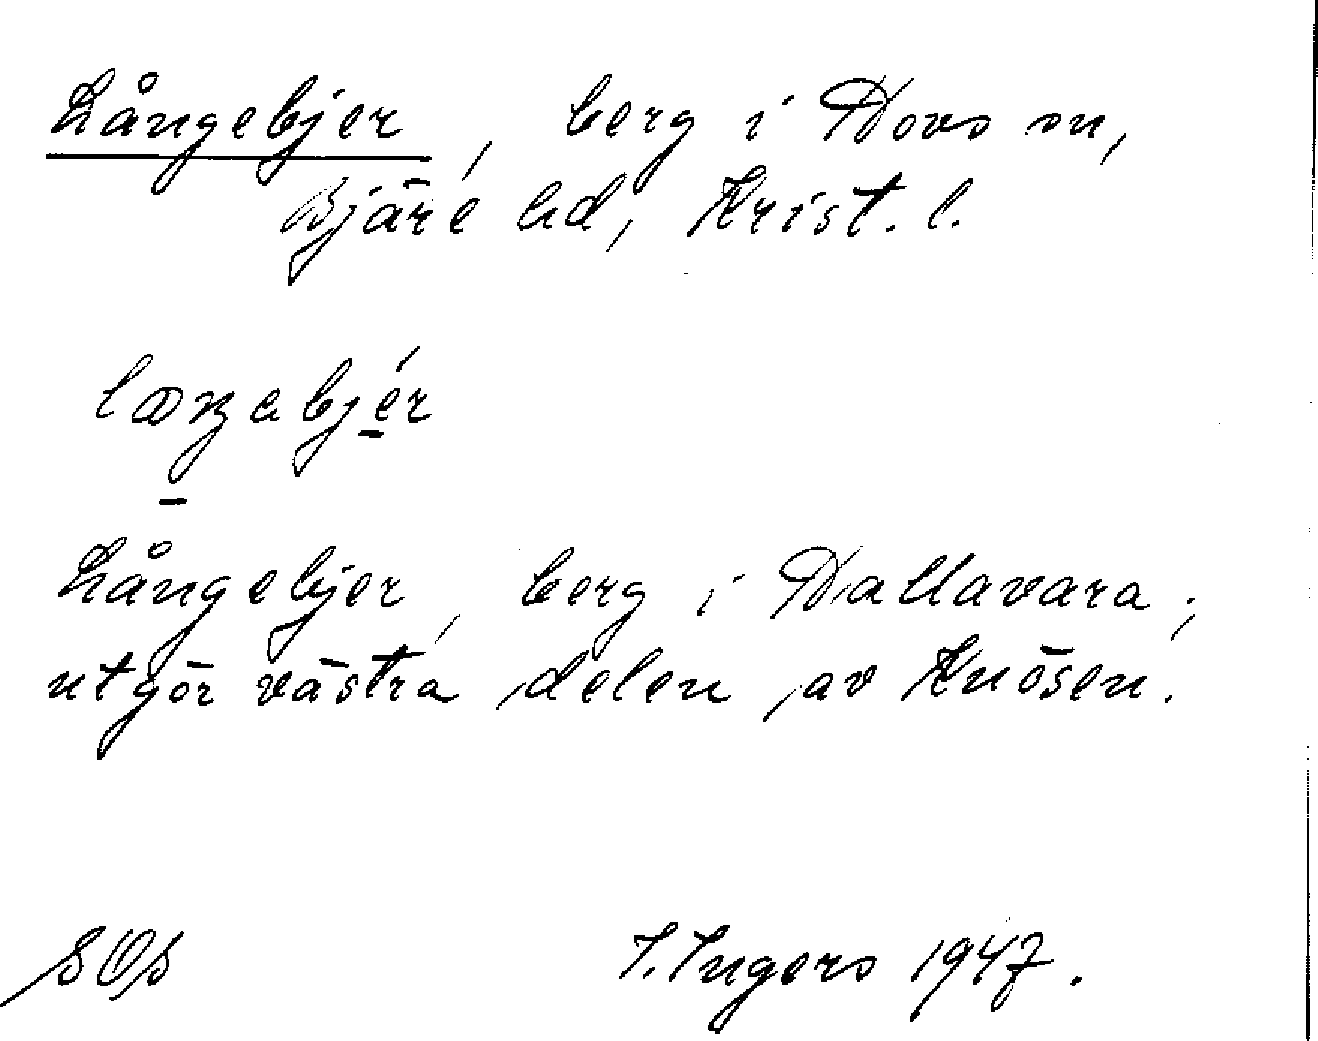 Långebjer, berg i Hovs sn,
Bjäre hd, Krist. l.
Långebjer, berg i Hallavara;
utgör västra delen av Knösen.
SOS I. Ingers 1947.